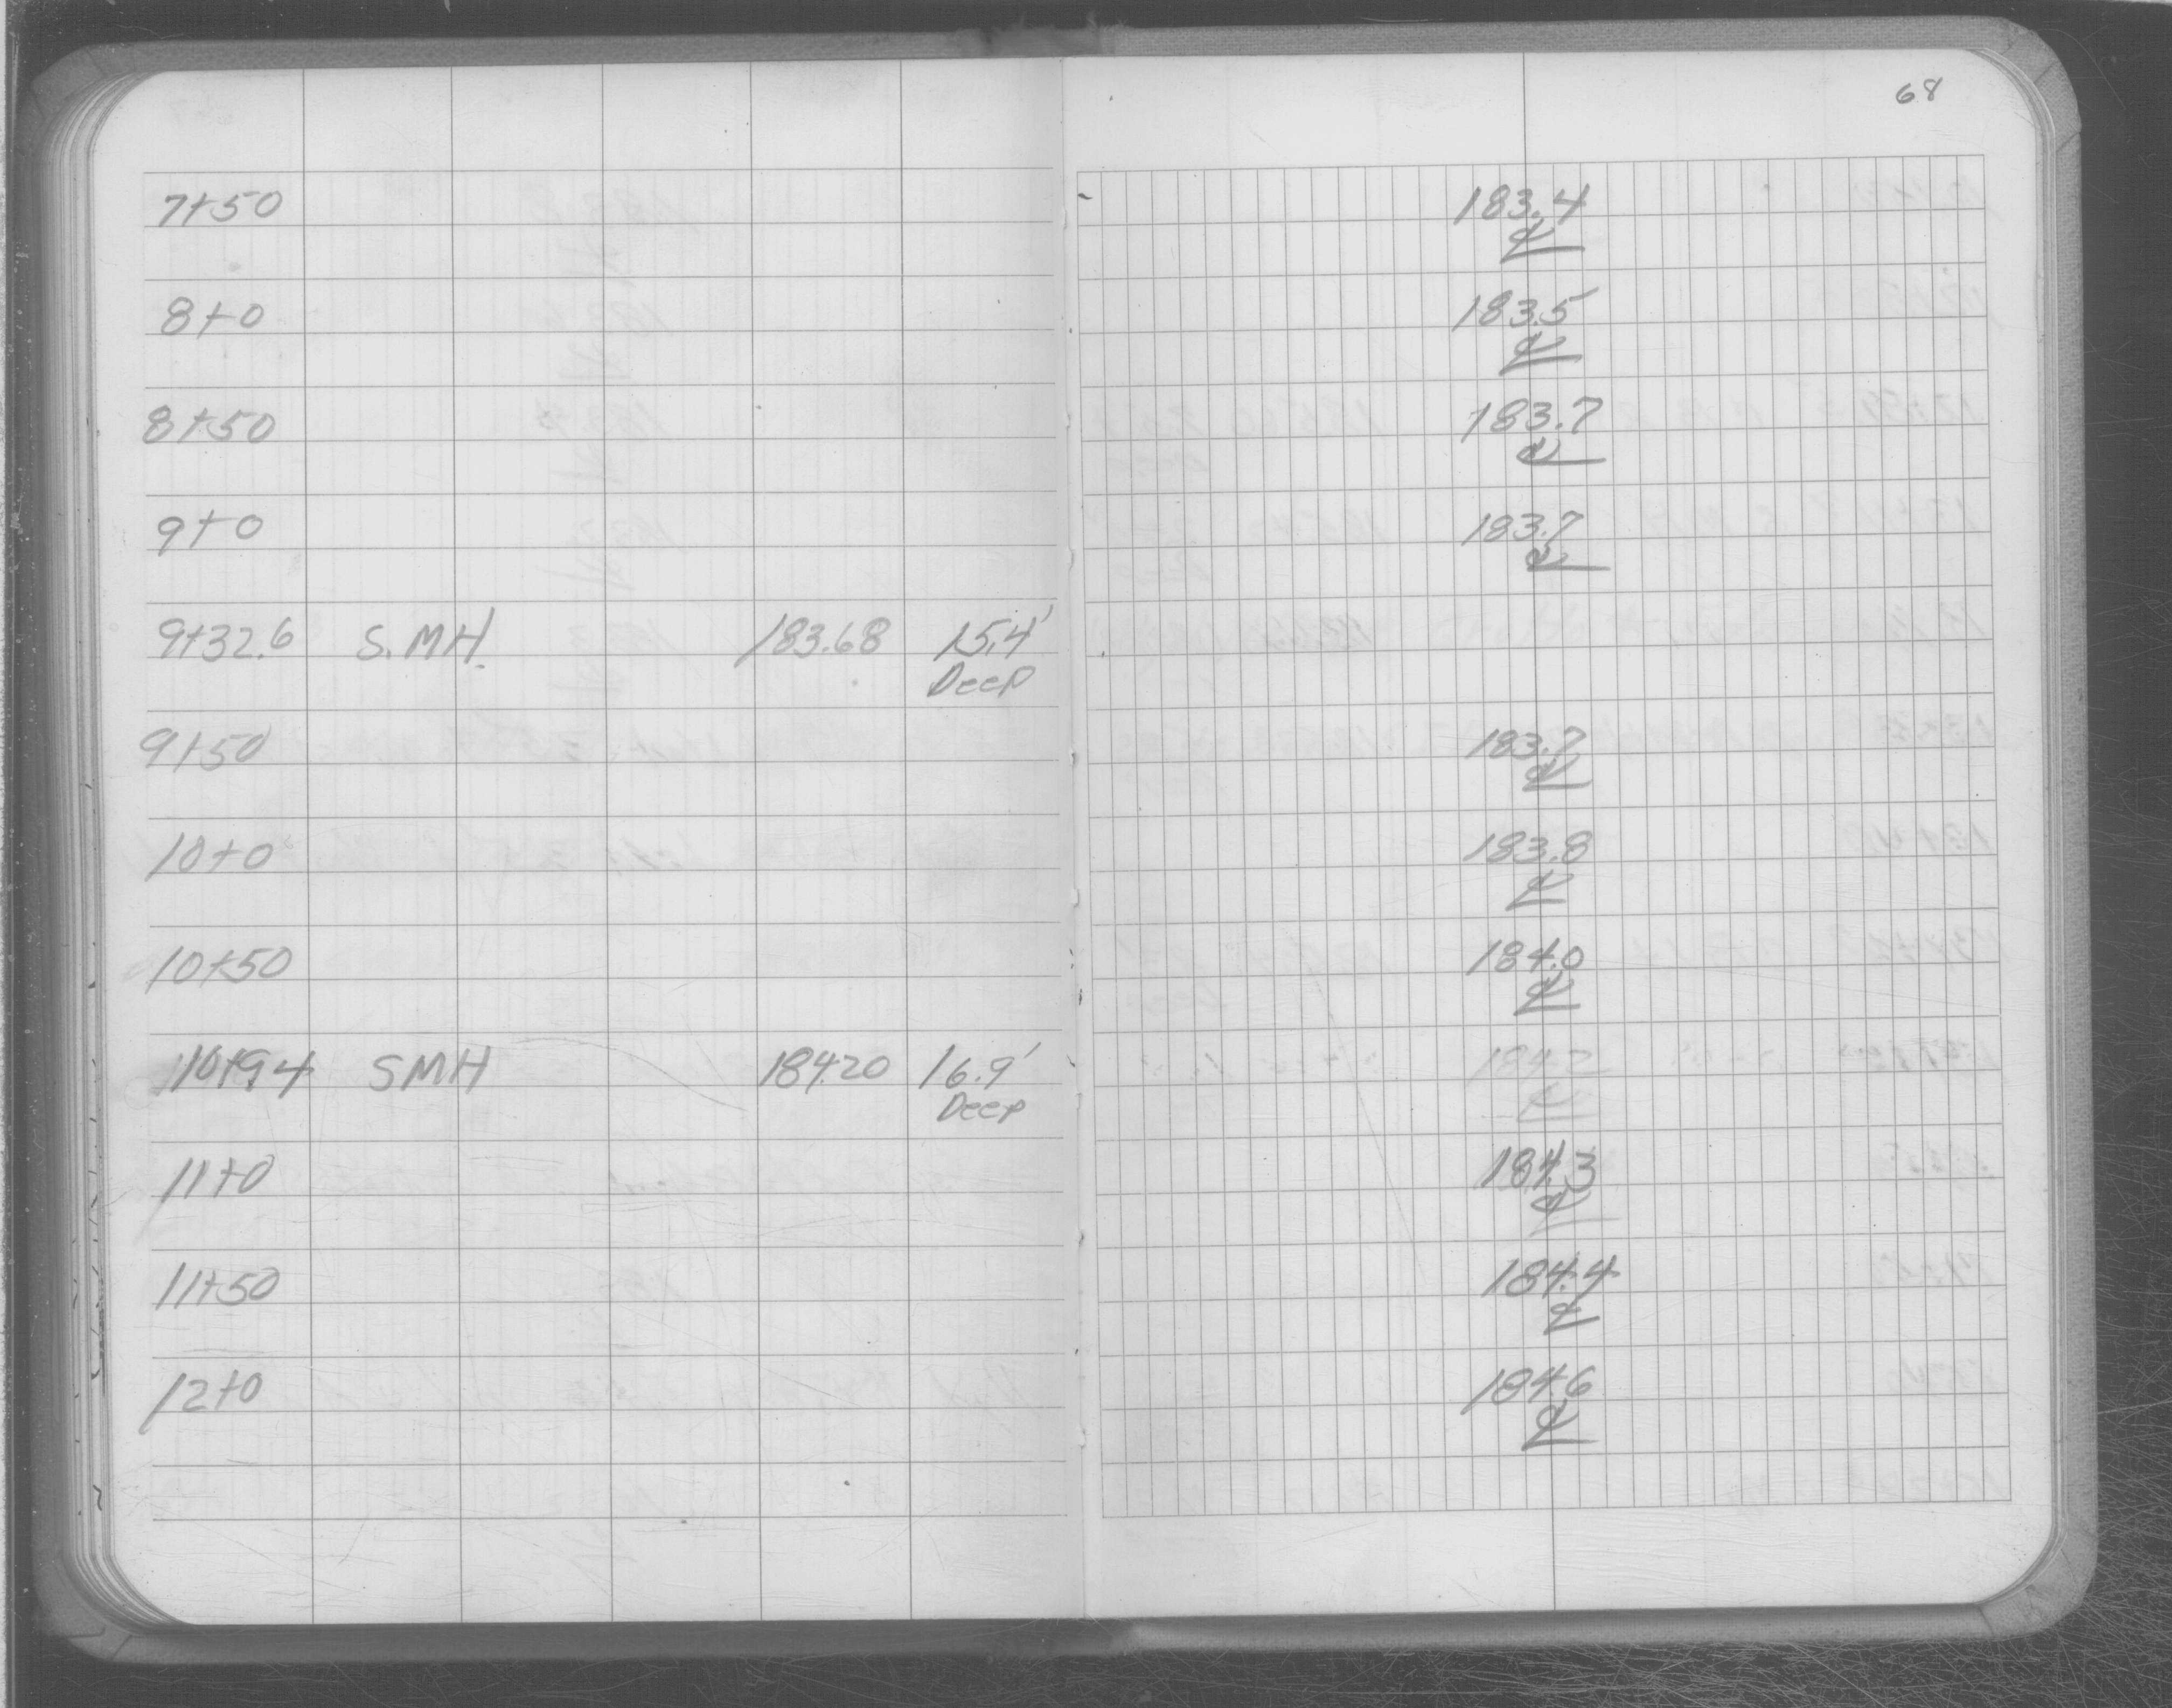 68
7+50 183.4
℄
8+0 183.5
℄
8+50 183.7
℄
9+0 183.7
℄
9+32.6 S.MH. 183.68 15.4'
Deep
9+50 183.7
℄
10+0 183.8
℄
10+50 184.0
℄
10+94 SMH 184.20 16.9' 184.2
Deep ℄
11+0 184.3
℄
11+50 184.4
℄
12+0 184.6
℄